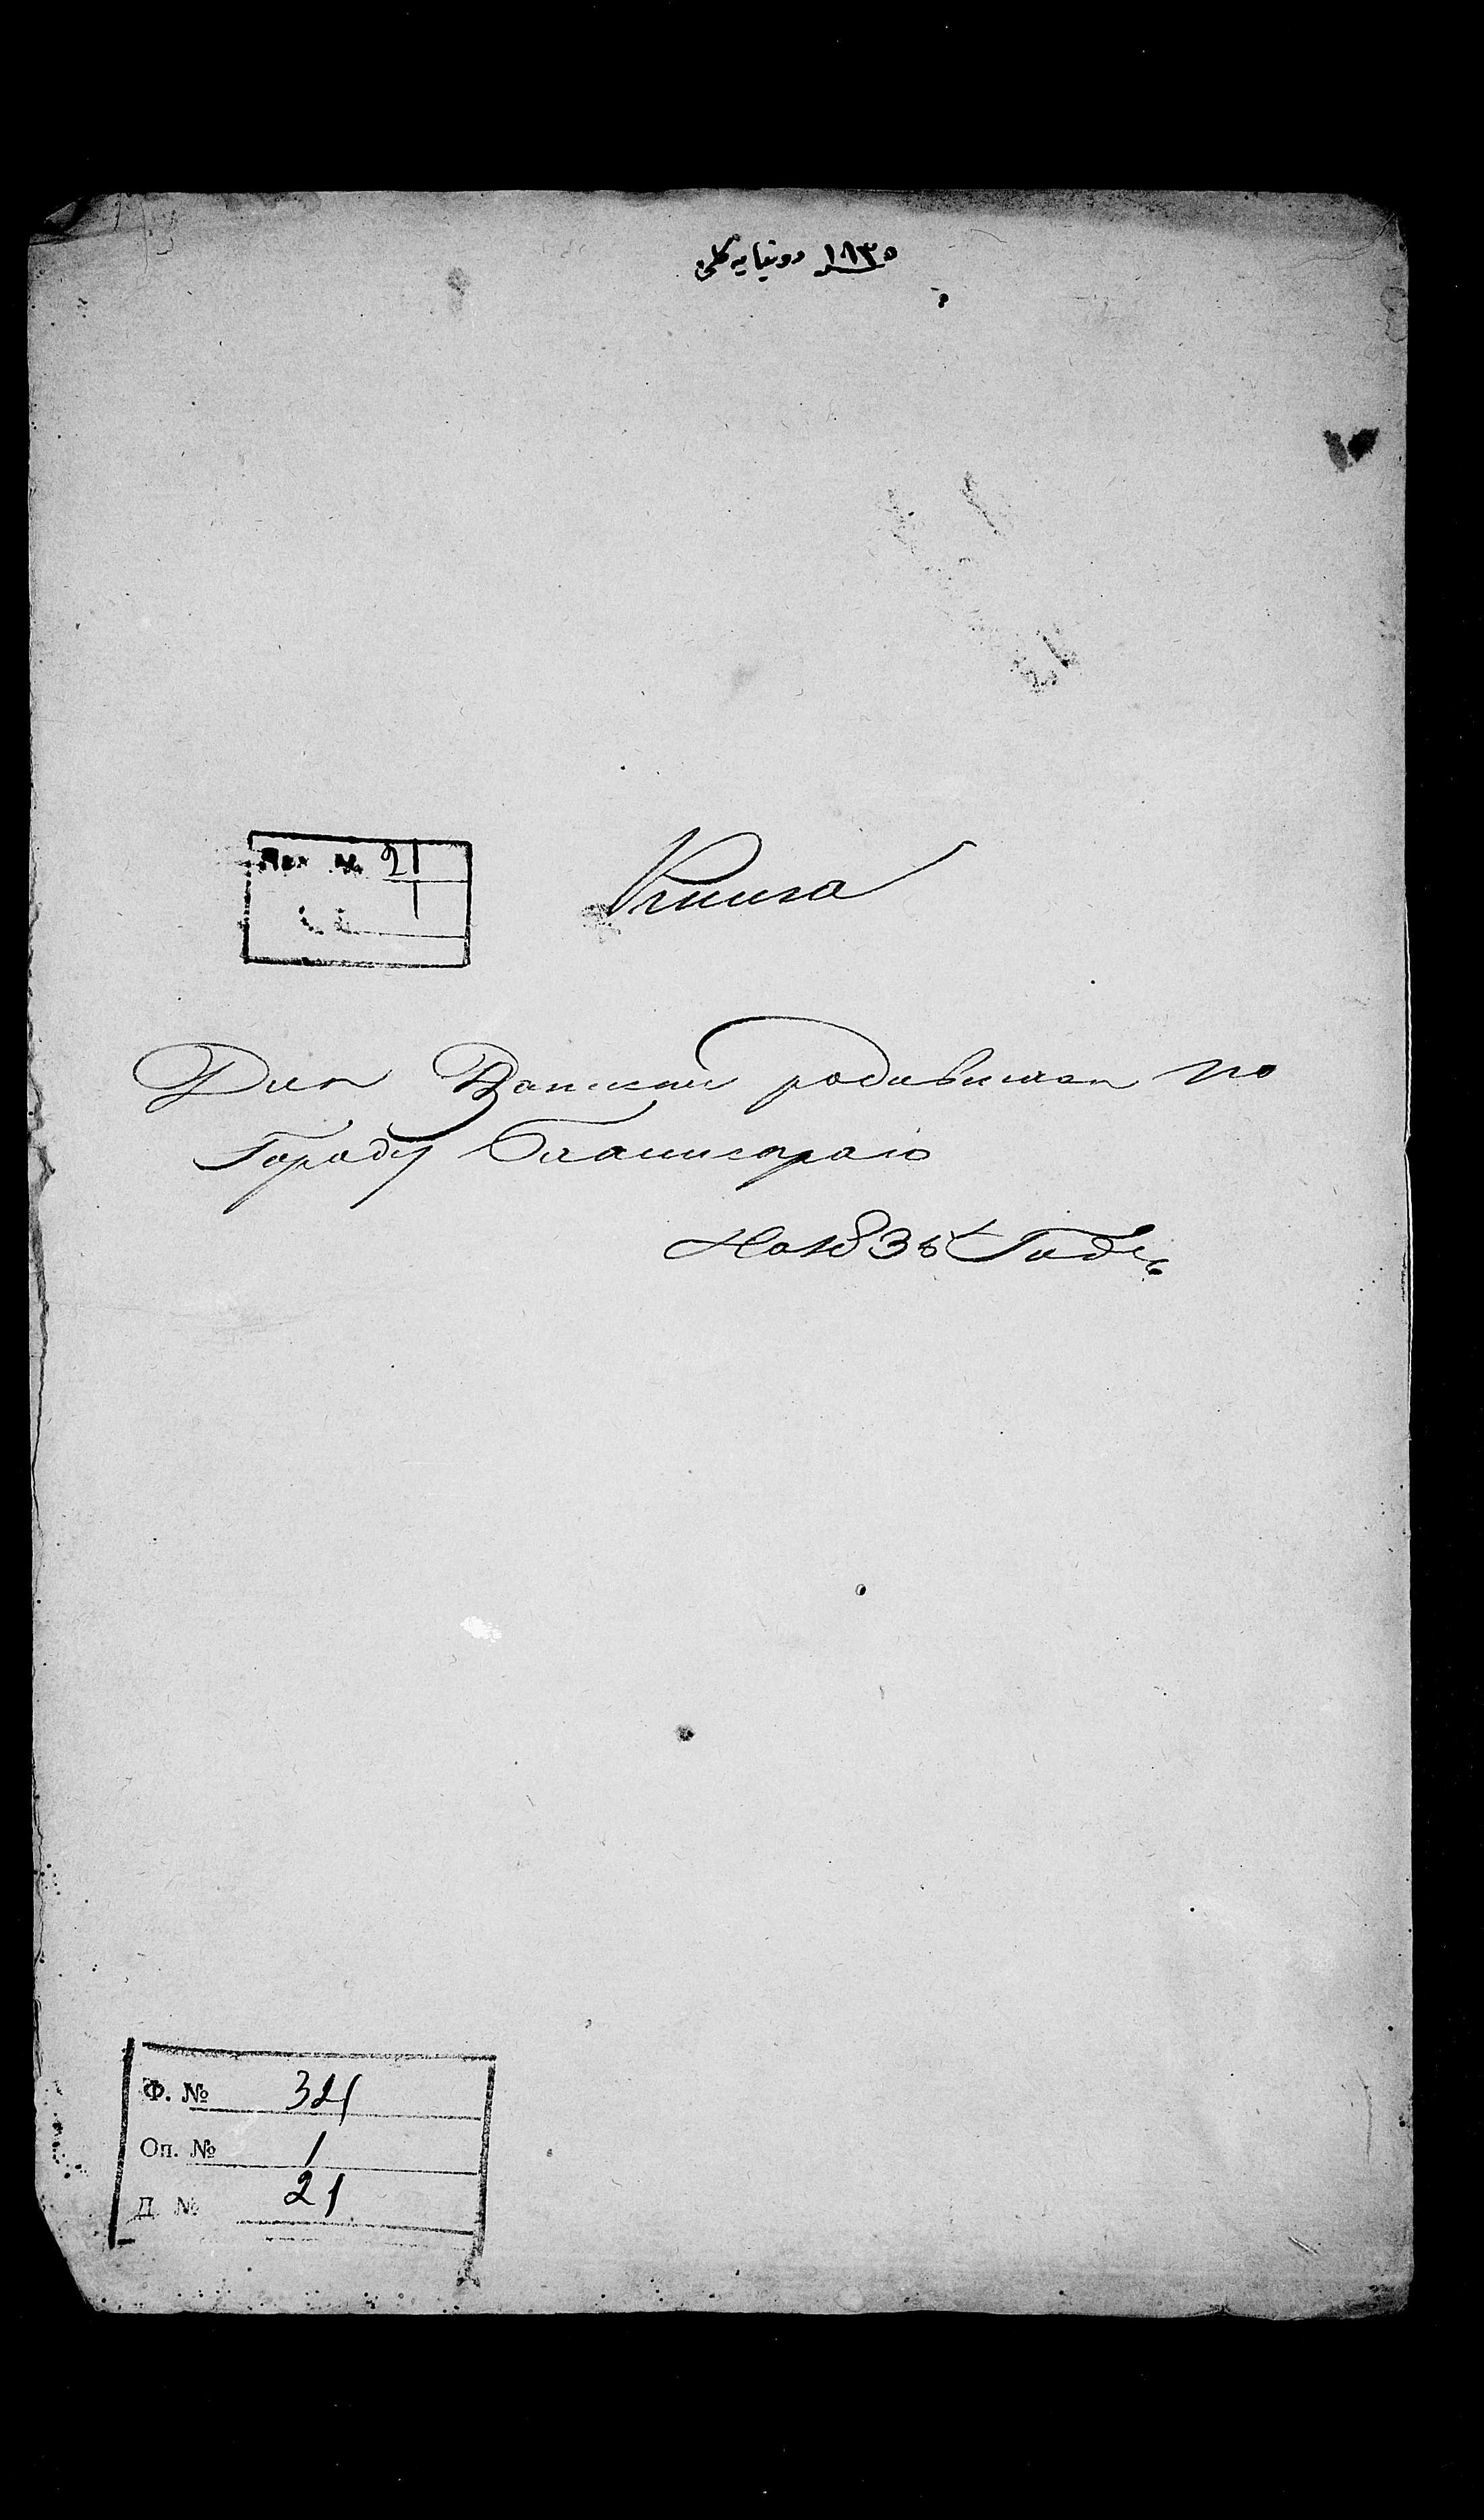 ١٨٣٥ دونيايه كلن
№ 21
1
Книга
Для Записки родившихся по
Городу Бахчисараю
На 1835 Годъ
Ф. № 321
Оп. № 1
Д № 21